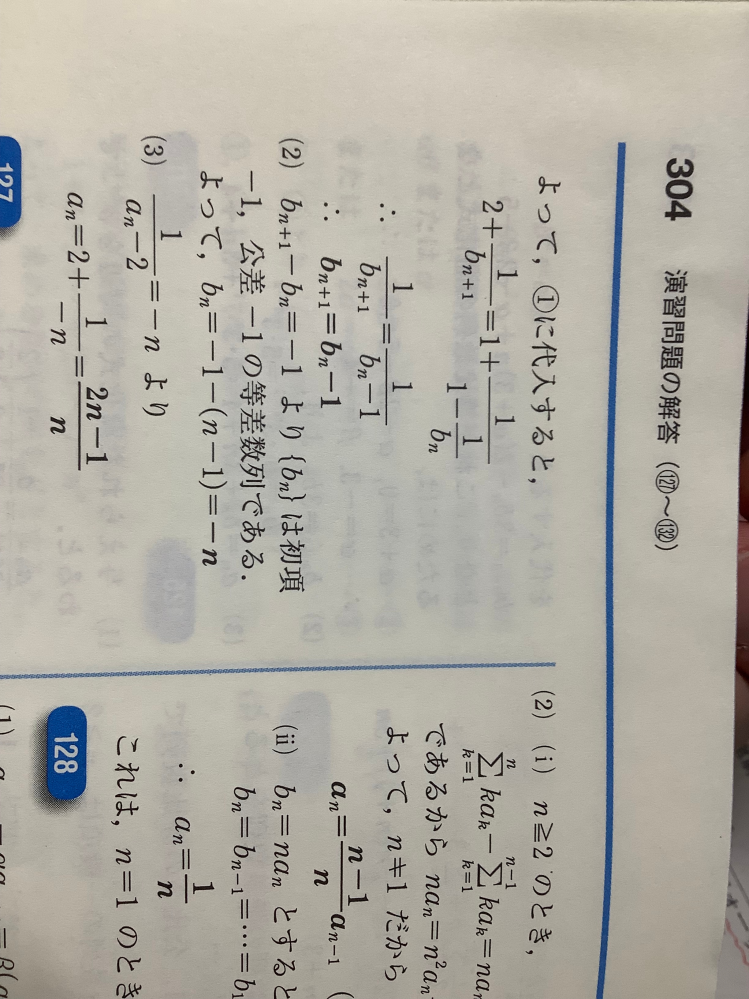 304 演習問題の解答(127〜132)
よって，①に代入すると，
2+1/b_{n+1}=1+1/(1-1/b_n)
∴ 1/b_{n+1}=1/(b_n-1)
∴ b_{n+1}=b_n-1
(2) b_{n+1}-b_n=-1 より {b_n} は初項
-1，公差 -1 の等差数列である．
よって，b_n=-1-(n-1)=-n
(3) 1/(a_n-2)=-n より
a_n=2+1/(-n)=(2n-1)/n
127
(2) (i) n≧2 のとき，
∑_{k=1}^{n} ka_k-∑_{k=1}^{n-1} ka_k=na_n
であるから na_n=n²a_n
よって，n≠1 だから
a_n=(n-1)/n a_{n-1} (
(ii) b_n=na_n とすると
b_n=b_{n-1}=…=b_1
∴ a_n=1/n
これは，n=1 のとき
128
(1)